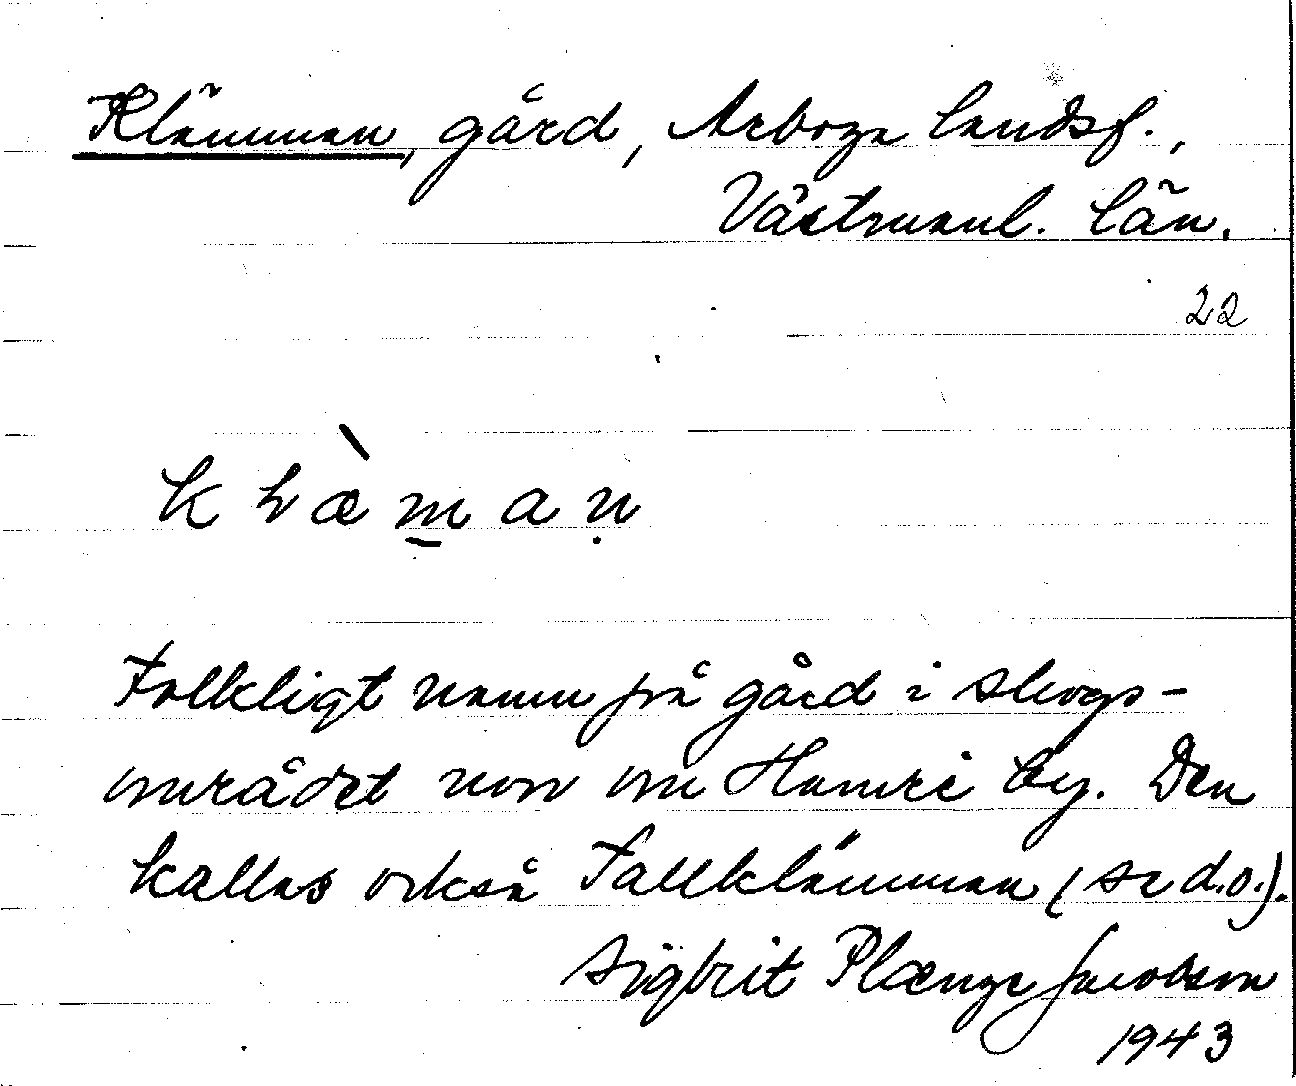 Klämman, gård, Arboga landsf.,
Västmanl. län.
22
k l æ̀ m̲ a ṇ
Folkligt namn på gård i skogs-
området norr om Hamre by. Den
kallas också Tallklämman (se d.o.).
Sigbrit Plænge Jacobson
1943